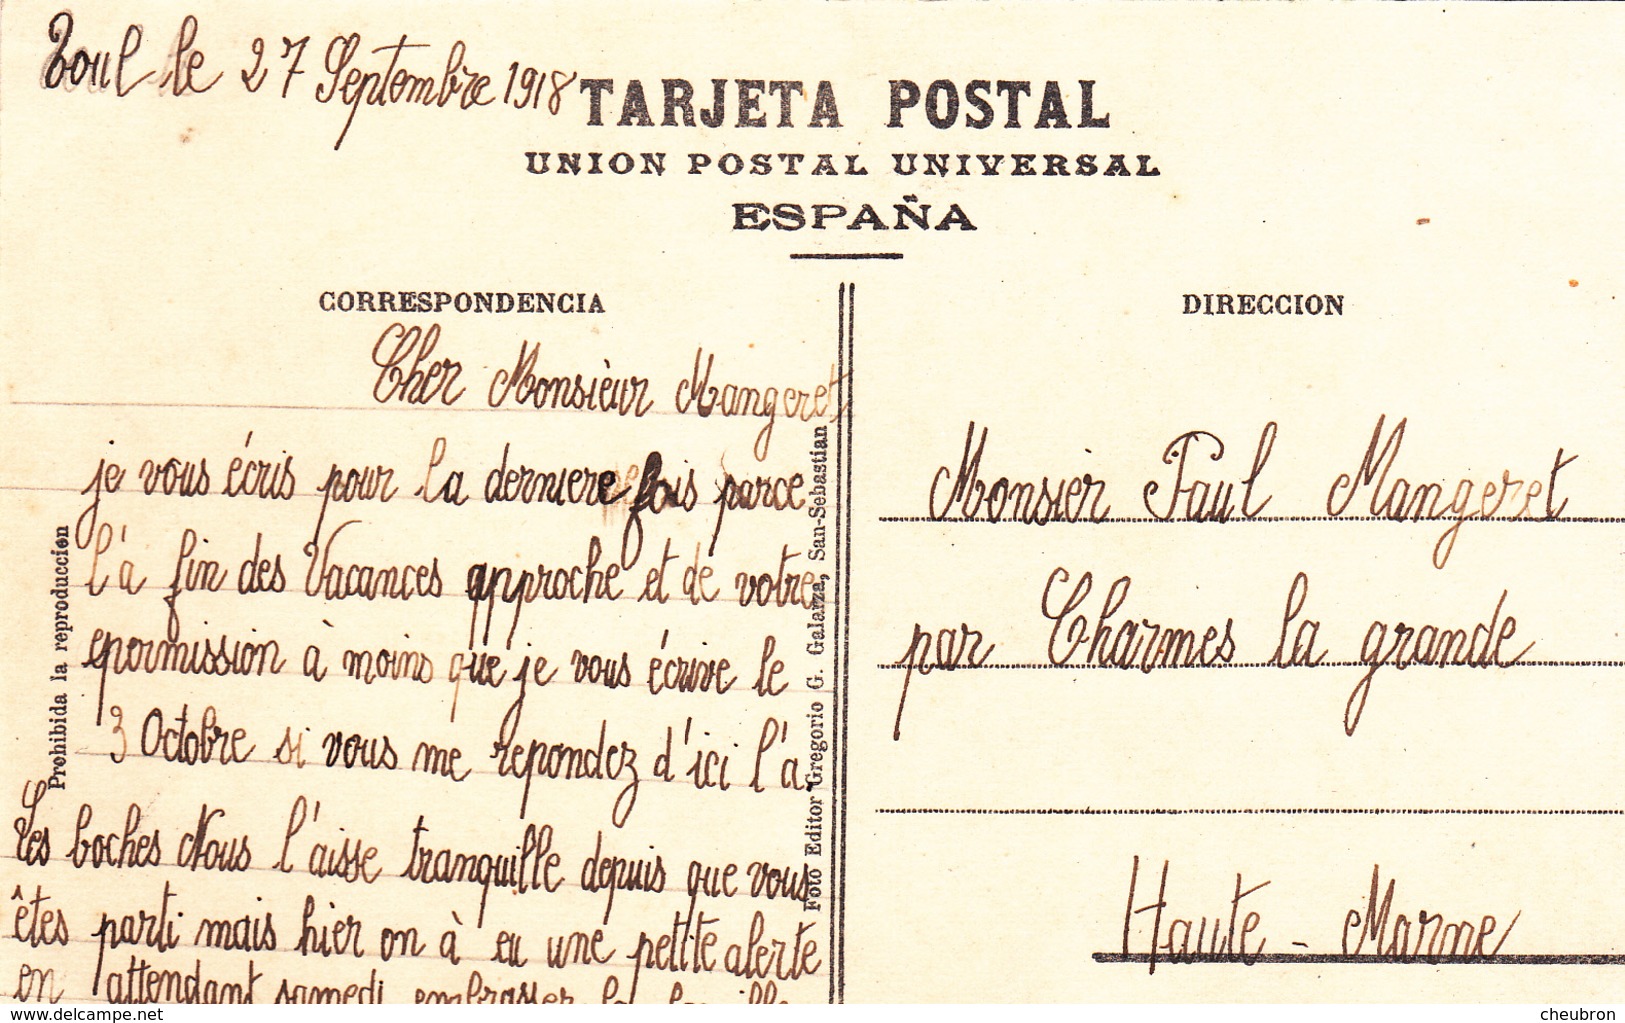 Toul le 27 Septembre 1918
TARJETA POSTAL
UNION POSTAL UNIVERSAL
ESPAÑA
CORRESPONDENCIA
Cher Monsièur Mangeret
je vous écris pour la derniere fois parce
l'à fin des Vacances approche et de votre
epormission à moins que je vous écrive le
3 Octobre si vous me repondez d'ici l'à.
Les boches Nous l'aisse tranquille depuis que vous
êtes parti mais hier on à eu une petite alerte
en attendant samedi embrasser la famille
Prohibida la reproducción
Foto Editor Gregorio G. Galarza, San-Sebastian
DIRECCION
Monsiér Paul Mangeret
par Charmes la grande
Haute - Marne
www.delcampe.net
cheubron